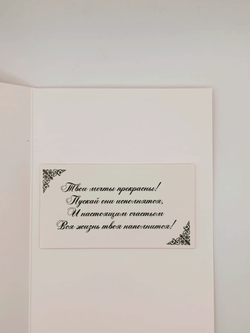 Твои мечты прекрасны!
Пускай они исполнятся,
И настоящим счастьем
Вся жизнь твоя наполнится!